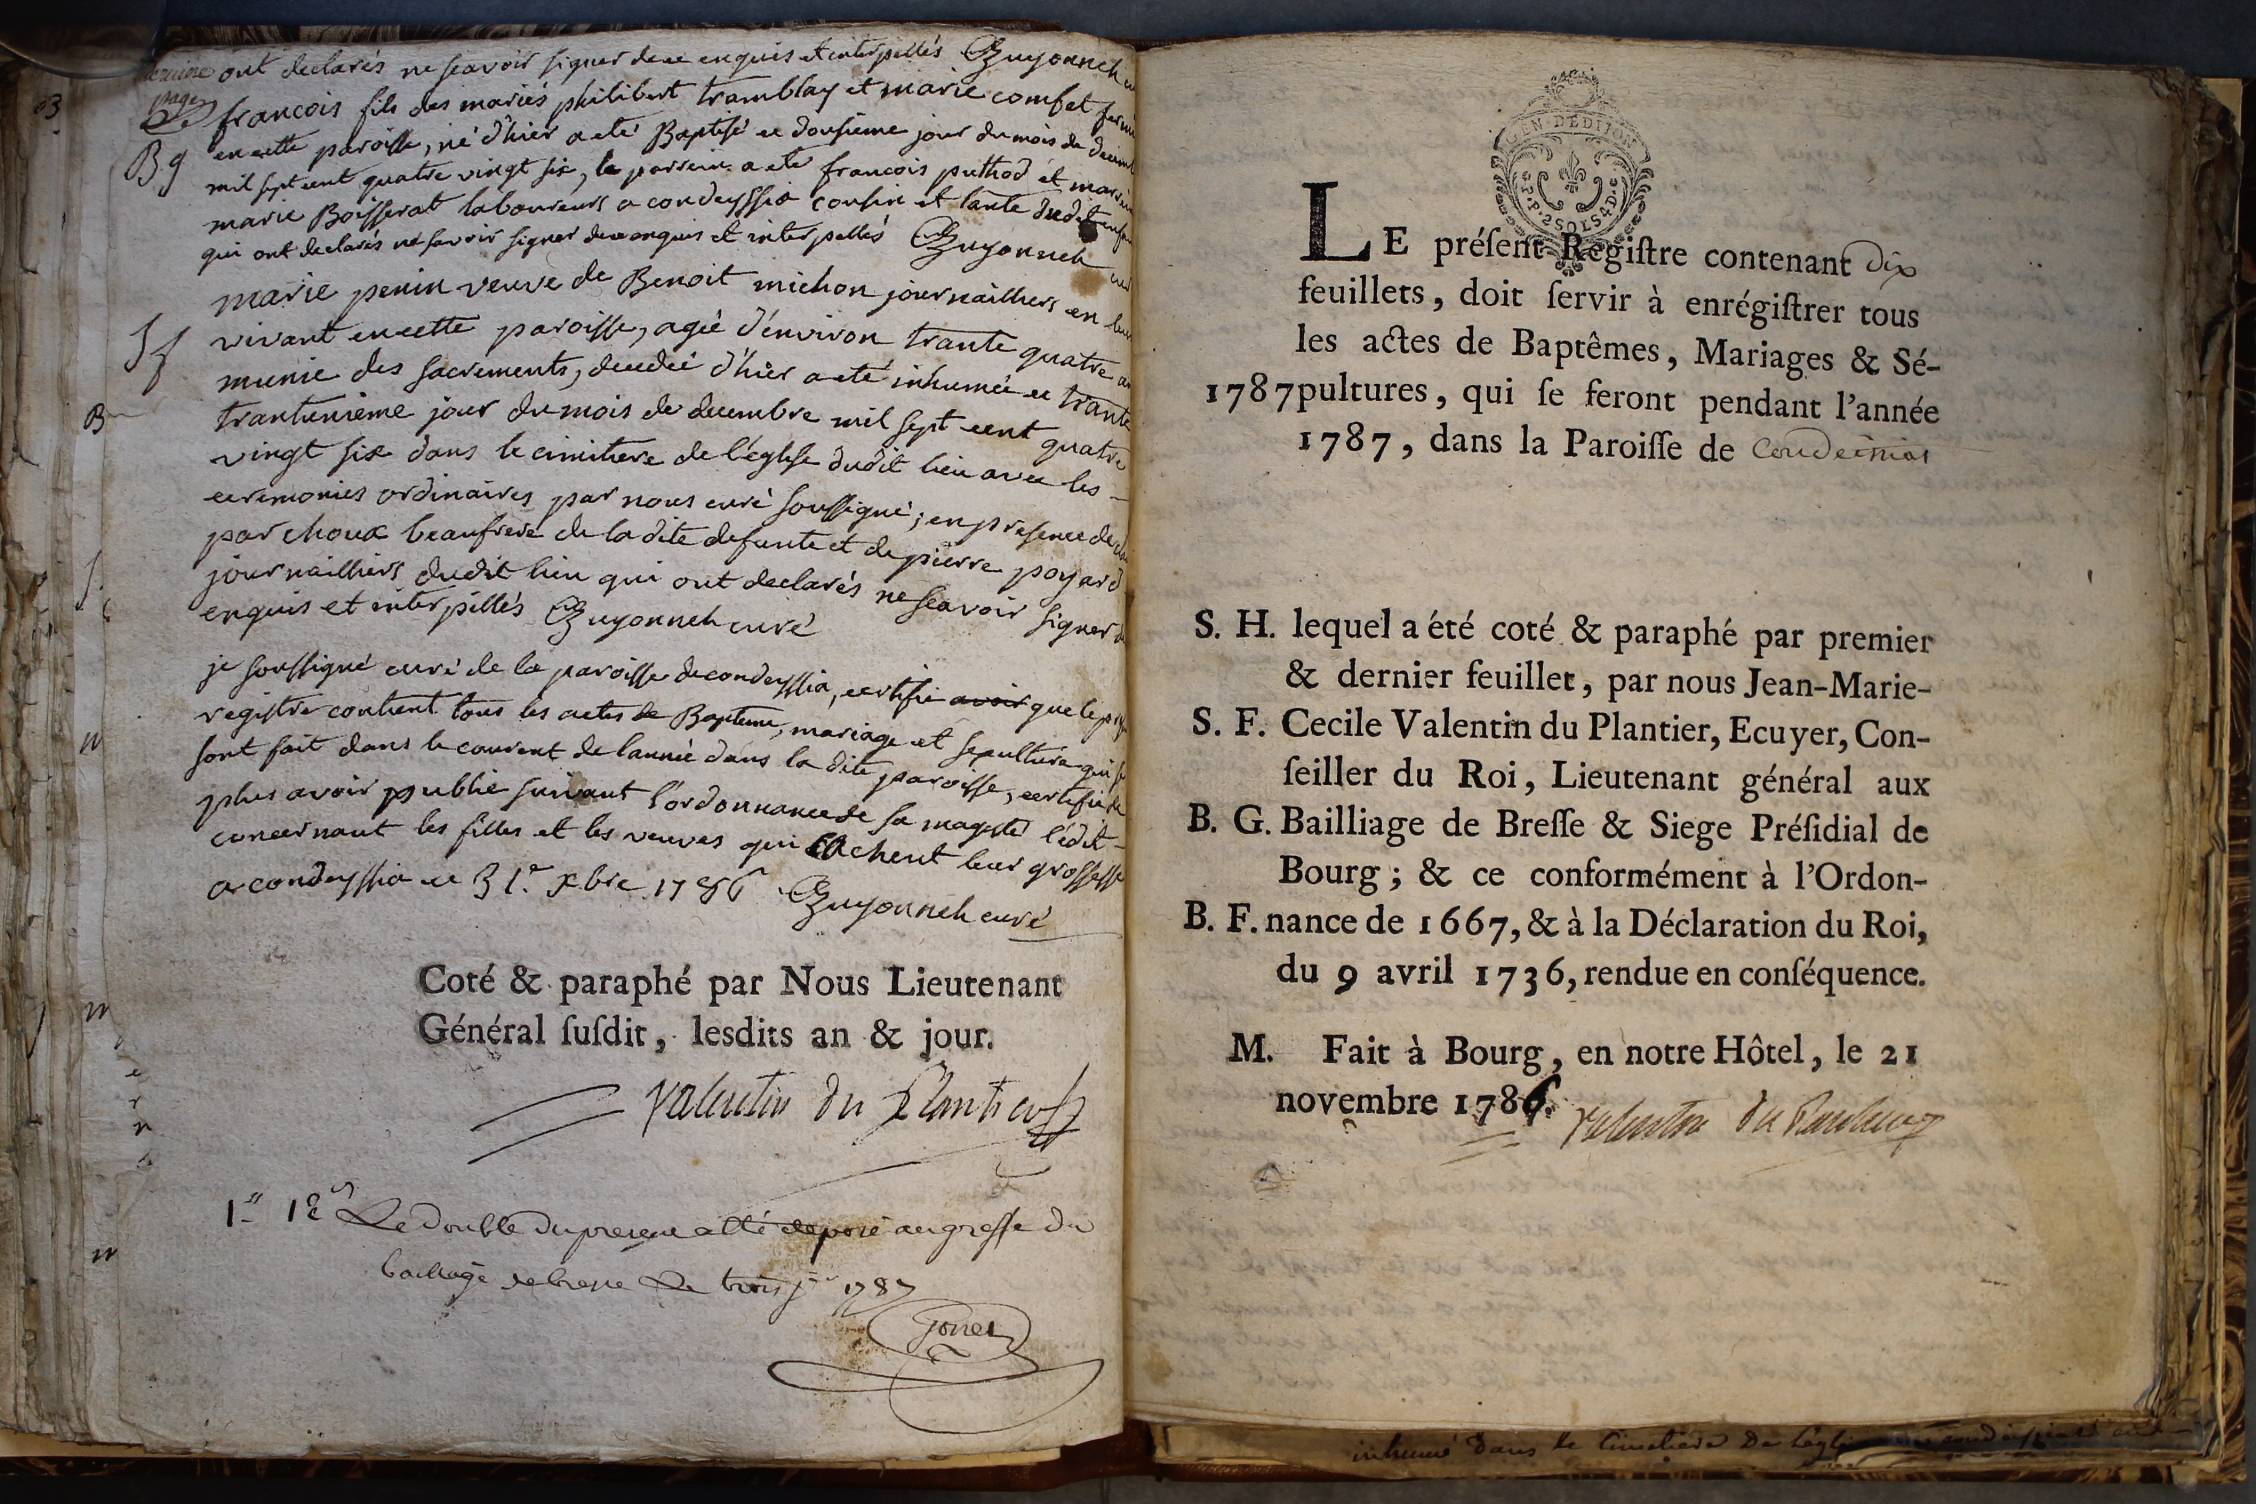 ont declarés ne scavoir signer de ce enquis et interpellés Guyonneh
francois fils des mariés philibert tramblay et marie comfet
en cette paroisse, né d'hier a eté Baptisé ce dousieme jour du mois de
B g
mil sept cent quatre vingt six, le parrein a ete francois puthod et
marie Boisserat laboureurs a condeyssia cousin et tante dudit
qui ont declarés ne savoir signer de ce enquis et interpellés Guyonneh
marie penin veuve de Benoit michon journailliers en
S f
vivant en cette paroisse, agée d'énviron trante quatre
munie des sacrements, decedée d'hier a eté inhumée ce trante
trantunième jour du mois de decembre mil sept cent quatre
vingt six dans le cimitiere de l'églse dudit lieu avec les
ceremonies ordinaires par nous curé soussigné; en presence de
par choux beaufrere de la dite defunte et de pierre poyard
journailliers dudit lieu qui ont declarés ne scavoir signer
enquis et interpillés Guyonneh curé
je soussigné curé de la paroisse de condeyssia, certifie avoir que le
registre contient tous les actes de Bapteme, mariage et sepulture qui se
sont fait dans le courent de lannée dans la dite paroisse, certifie de
plus avoir publié suivant l'ordonnance de sa magesté l'édit
concernant les filles et les veuves qui cachent leur grossesse
a condeyssia ce 31.e xbre 1786 Guyonneh curé
Coté & paraphé par Nous Lieutenant
Général ſuſdit, lesdits an & jour.
Valentin du Plantier
Le double du present a été deposé au greffe du
bailliage de bresse Le trois 1787
LE préſent Regiſtre contenant dix
feuillets, doit ſervir à enrégiſtrer tous
les actes de Baptêmes, Mariages & Sé-
1787 pultures, qui ſe feront pendant l'année
1787, dans la Paroiſſe de Condeissiat
S. H. lequel a été coté & paraphé par premier
& dernier feuillet, par nous Jean-Marie-
S. F. Cecile Valentin du Plantier, Ecuyer, Con-
ſeiller du Roi, Lieutenant général aux
B. G. Bailliage de Breſſe & Siege Préſidial de
Bourg; & ce conformément à l'Ordon-
B. F. nance de 1667, & à la Déclaration du Roi,
du 9 avril 1736, rendue en conſéquence.
M. Fait à Bourg, en notre Hôtel, le 21
novembre 1786. Valentin du Plantier
inhumé dans le Cimetiere De l'églis